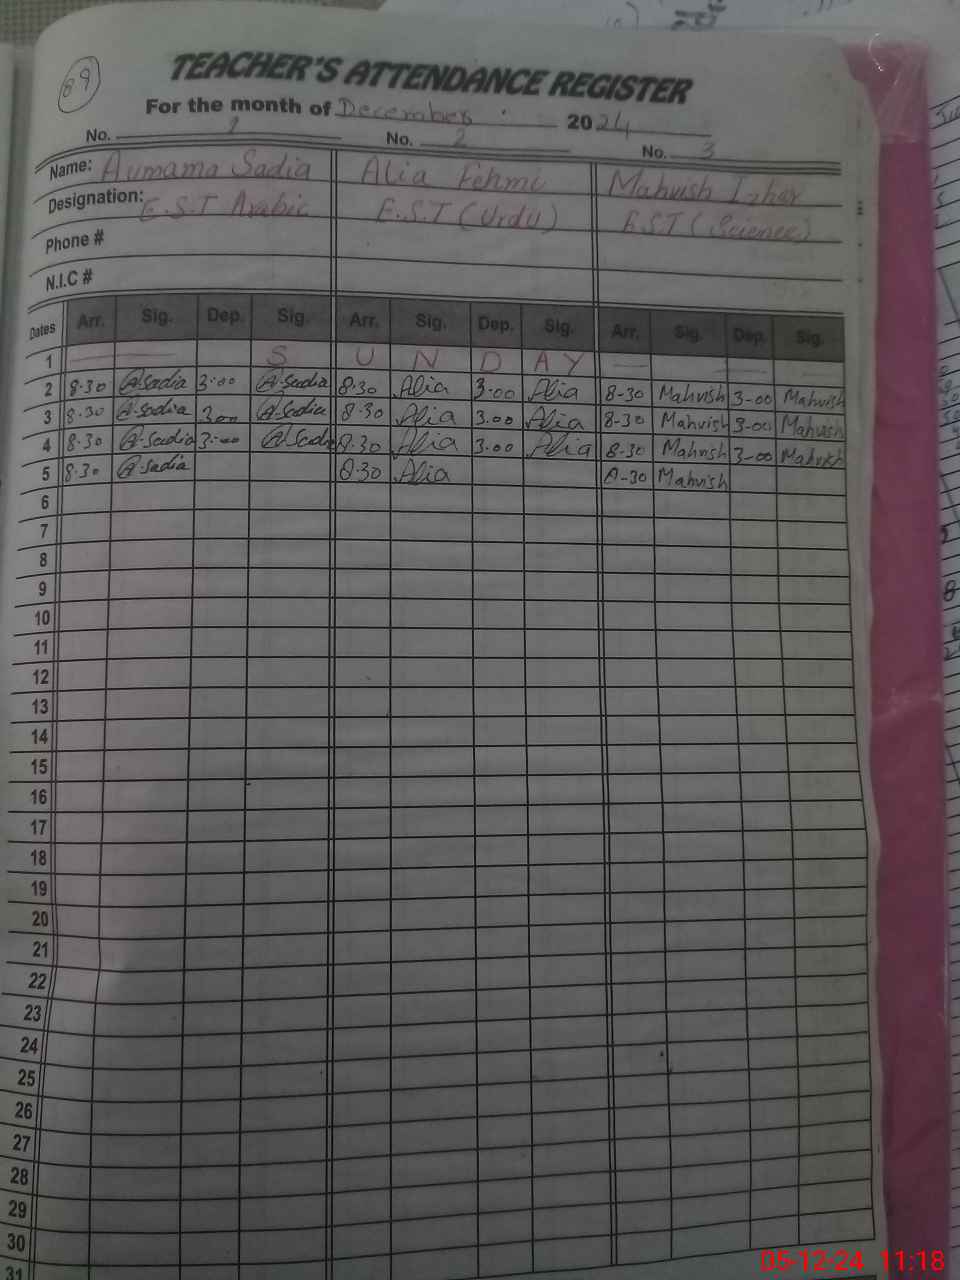 89
TEACHER'S ATTENDANCE REGISTER
For the month of December 2024
No. 1 No. 2 No. 3
Name: Aumama Sadia Alia Fehmi Mahvish Izhar
Designation: E.S.T Arabic E.S.T (Urdu) EST (Science)
Phone #
N.I.C #
Dates Arr. Sig. Dep. Sig. Arr. Sig. Dep. Sig. Arr. Sig. Dep. Sig.
1 S U N D A Y
2 8.30 A.Sadia 3:00 A.Sadia 8.30 Alia 3.00 Alia 8-30 Mahvish 3-00 Mahvish
3 8.30 A.Sadia 3.00 A.Sadia 8.30 Alia 3.00 Alia 8-30 Mahvish 3-00 Mahvish
4 8.30 A.Sadia 3:00 A.Sadia 8.30 Alia 3.00 Alia 8-30 Mahvish 3-00 Mahvish
5 8.30 A.Sadia 8.30 Alia 8-30 Mahvish
6
7
8
9
10
11
12
13
14
15
16
17
18
19
20
21
22
23
24
25
26
27
28
29
30
31
05-12-24 11:18